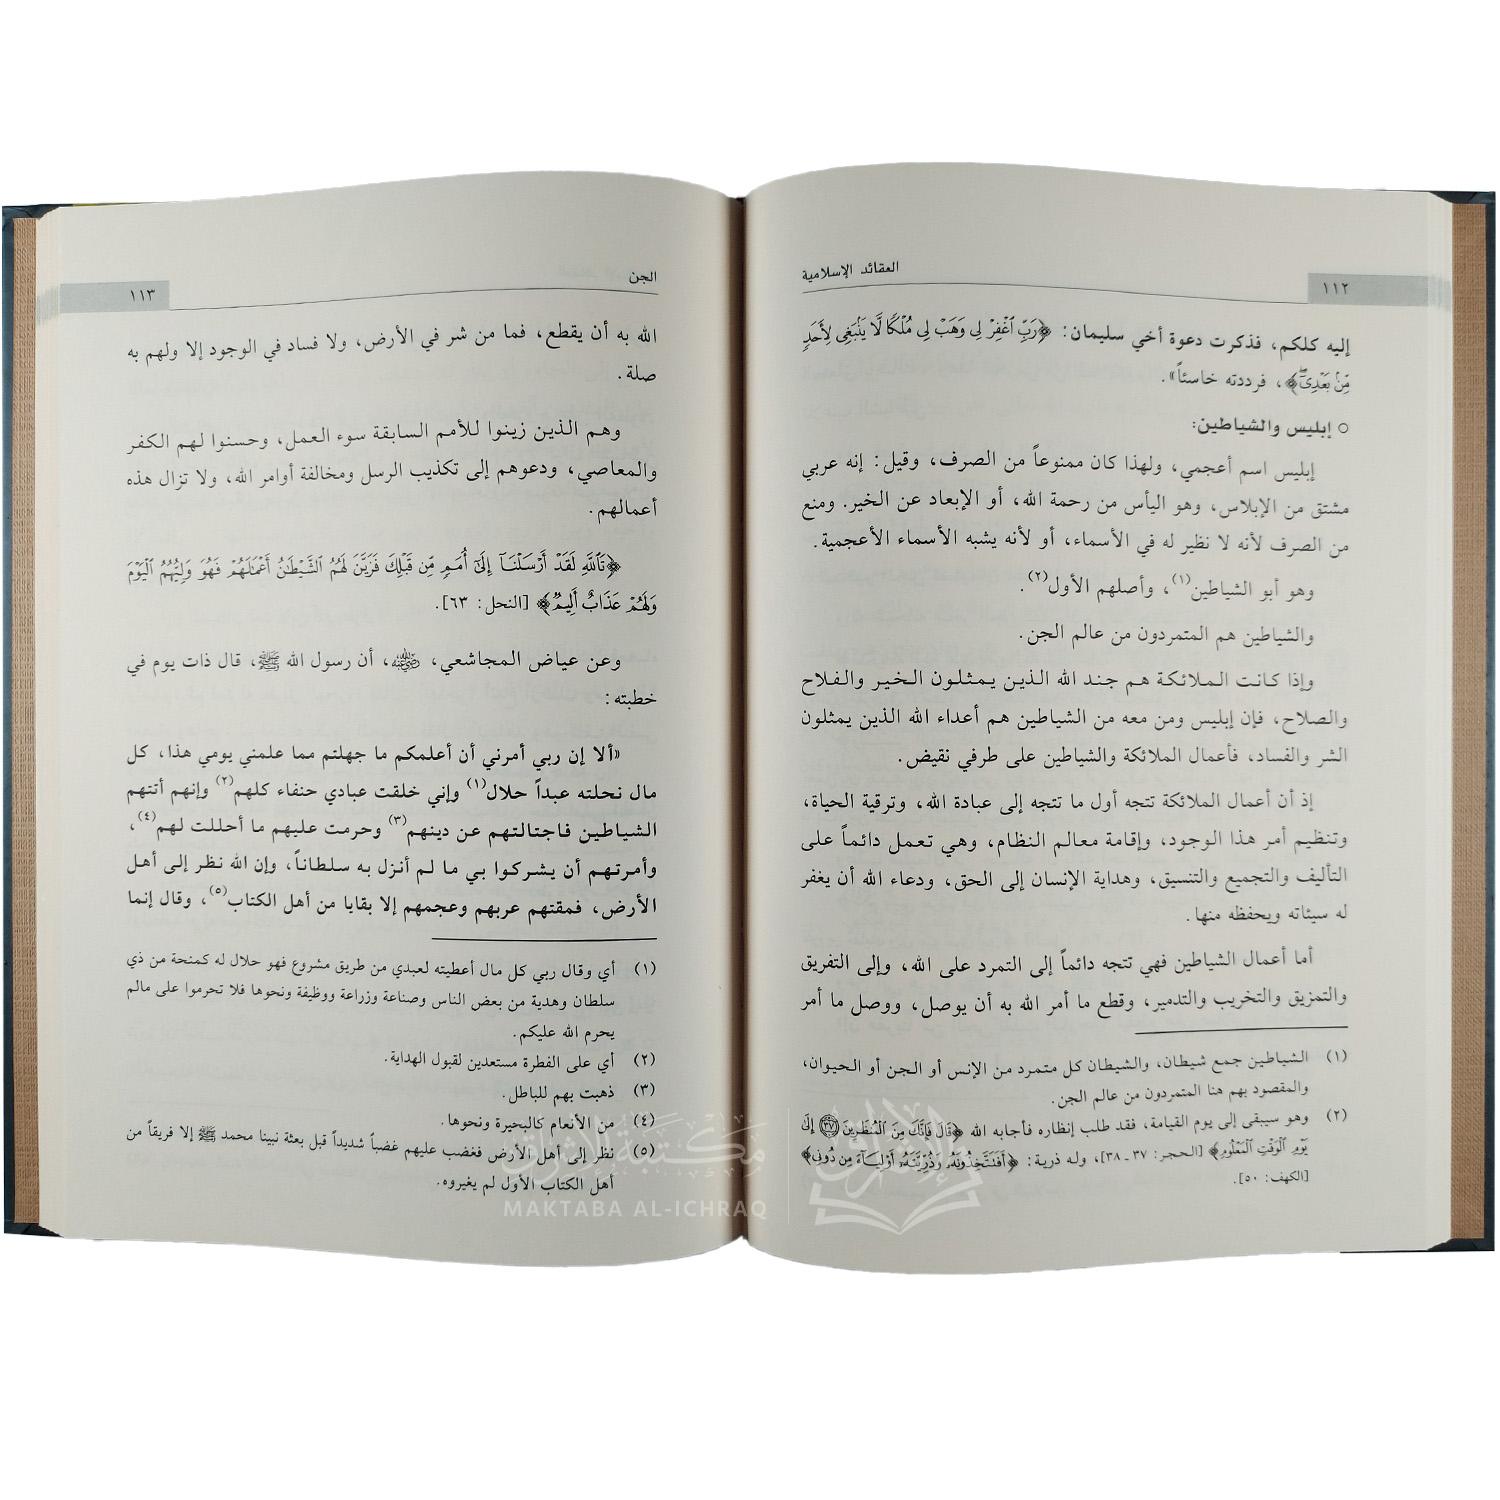 ١١٢
العقائد الإسلامية
إليه كلكم، فذكرت دعوة أخي سليمان: ﴿رَبِّ ٱغْفِرْ لِي وَهَبْ لِي مُلْكًا لَّا يَنۢبَغِي لِأَحَدٍ
مِّنۢ بَعْدِيٓ﴾، فرددته خاسئاً».
○ إبليس والشياطين:
إبليس اسم أعجمي، ولهذا كان ممنوعاً من الصرف، وقيل: إنه عربي
مشتق من الإبلاس، وهو اليأس من رحمة الله، أو الإبعاد عن الخير. ومنع
من الصرف لأنه لا نظير له في الأسماء، أو لأنه يشبه الأسماء الأعجمية.
وهو أبو الشياطين(١)، وأصلهم الأول(٢).
والشياطين هم المتمردون من عالم الجن.
وإذا كانت الملائكة هم جند الله الذين يمثلون الخير والفلاح
والصلاح، فإن إبليس ومن معه من الشياطين هم أعداء الله الذين يمثلون
الشر والفساد، فأعمال الملائكة والشياطين على طرفي نقيض.
إذ أن أعمال الملائكة تتجه أول ما تتجه إلى عبادة الله، وترقية الحياة،
وتنظيم أمر هذا الوجود، وإقامة معالم النظام، وهي تعمل دائماً على
التأليف والتجميع والتنسيق، وهداية الإنسان إلى الحق، ودعاء الله أن يغفر
له سيئاته ويحفظه منها.
أما أعمال الشياطين فهي تتجه دائماً إلى التمرد على الله، وإلى التفريق
والتمزيق والتخريب والتدمير، وقطع ما أمر الله به أن يوصل، ووصل ما أمر
(١) الشياطين جمع شيطان، والشيطان كل متمرد من الإنس أو الجن أو الحيوان،
والمقصود بهم هنا المتمردون من عالم الجن.
(٢) وهو سيبقى إلى يوم القيامة، فقد طلب إنظاره فأجابه الله ﴿قَالَ فَإِنَّكَ مِنَ ٱلْمُنظَرِينَ ٣٧ إِلَىٰ
يَوْمِ ٱلْوَقْتِ ٱلْمَعْلُومِ﴾ [الحجر: ٣٧ ـ ٣٨]، وله ذرية: ﴿أَفَتَتَّخِذُونَهُۥ وَذُرِّيَّتَهُۥٓ أَوْلِيَآءَ مِن دُونِي﴾
[الكهف: ٥٠].
الجن
١١٣
الله به أن يقطع، فما من شر في الأرض، ولا فساد في الوجود إلا ولهم به
صلة.
وهم الذين زينوا للأمم السابقة سوء العمل، وحسنوا لهم الكفر
والمعاصي، ودعوهم إلى تكذيب الرسل ومخالفة أوامر الله، ولا تزال هذه
أعمالهم.
﴿تَٱللَّهِ لَقَدْ أَرْسَلْنَآ إِلَىٰٓ أُمَمٍ مِّن قَبْلِكَ فَزَيَّنَ لَهُمُ ٱلشَّيْطَٰنُ أَعْمَٰلَهُمْ فَهُوَ وَلِيُّهُمُ ٱلْيَوْمَ
وَلَهُمْ عَذَابٌ أَلِيمٌ﴾ [النحل: ٦٣].
وعن عياض المجاشعي، رضي الله عنه، أن رسول الله ﷺ، قال ذات يوم في
خطبته:
«ألا إن ربي أمرني أن أعلمكم ما جهلتم مما علمني يومي هذا، كل
مال نحلته عبداً حلال(١) وإني خلقت عبادي حنفاء كلهم(٢) وإنهم أتتهم
الشياطين فاجتالتهم عن دينهم(٣) وحرمت عليهم ما أحللت لهم(٤)،
وأمرتهم أن يشركوا بي ما لم أنزل به سلطاناً، وإن الله نظر إلى أهل
الأرض، فمقتهم عربهم وعجمهم إلا بقايا من أهل الكتاب(٥)، وقال إنما
(١) أي وقال ربي كل مال أعطيته لعبدي من طريق مشروع فهو حلال له كمنحة من ذي
سلطان وهدية من بعض الناس وصناعة وزراعة ووظيفة ونحوها فلا تحرموا على مالم
يحرم الله عليكم.
(٢) أي على الفطرة مستعدين لقبول الهداية.
(٣) ذهبت بهم للباطل.
(٤) من الأنعام كالبحيرة ونحوها.
(٥) نظر إلى أهل الأرض فغضب عليهم غضباً شديداً قبل بعثة نبينا محمد ﷺ إلا فريقاً من
أهل الكتاب الأول لم يغيروه.
مكتبة الإشراق
MAKTABA AL-ICHRAQ
الإشراق